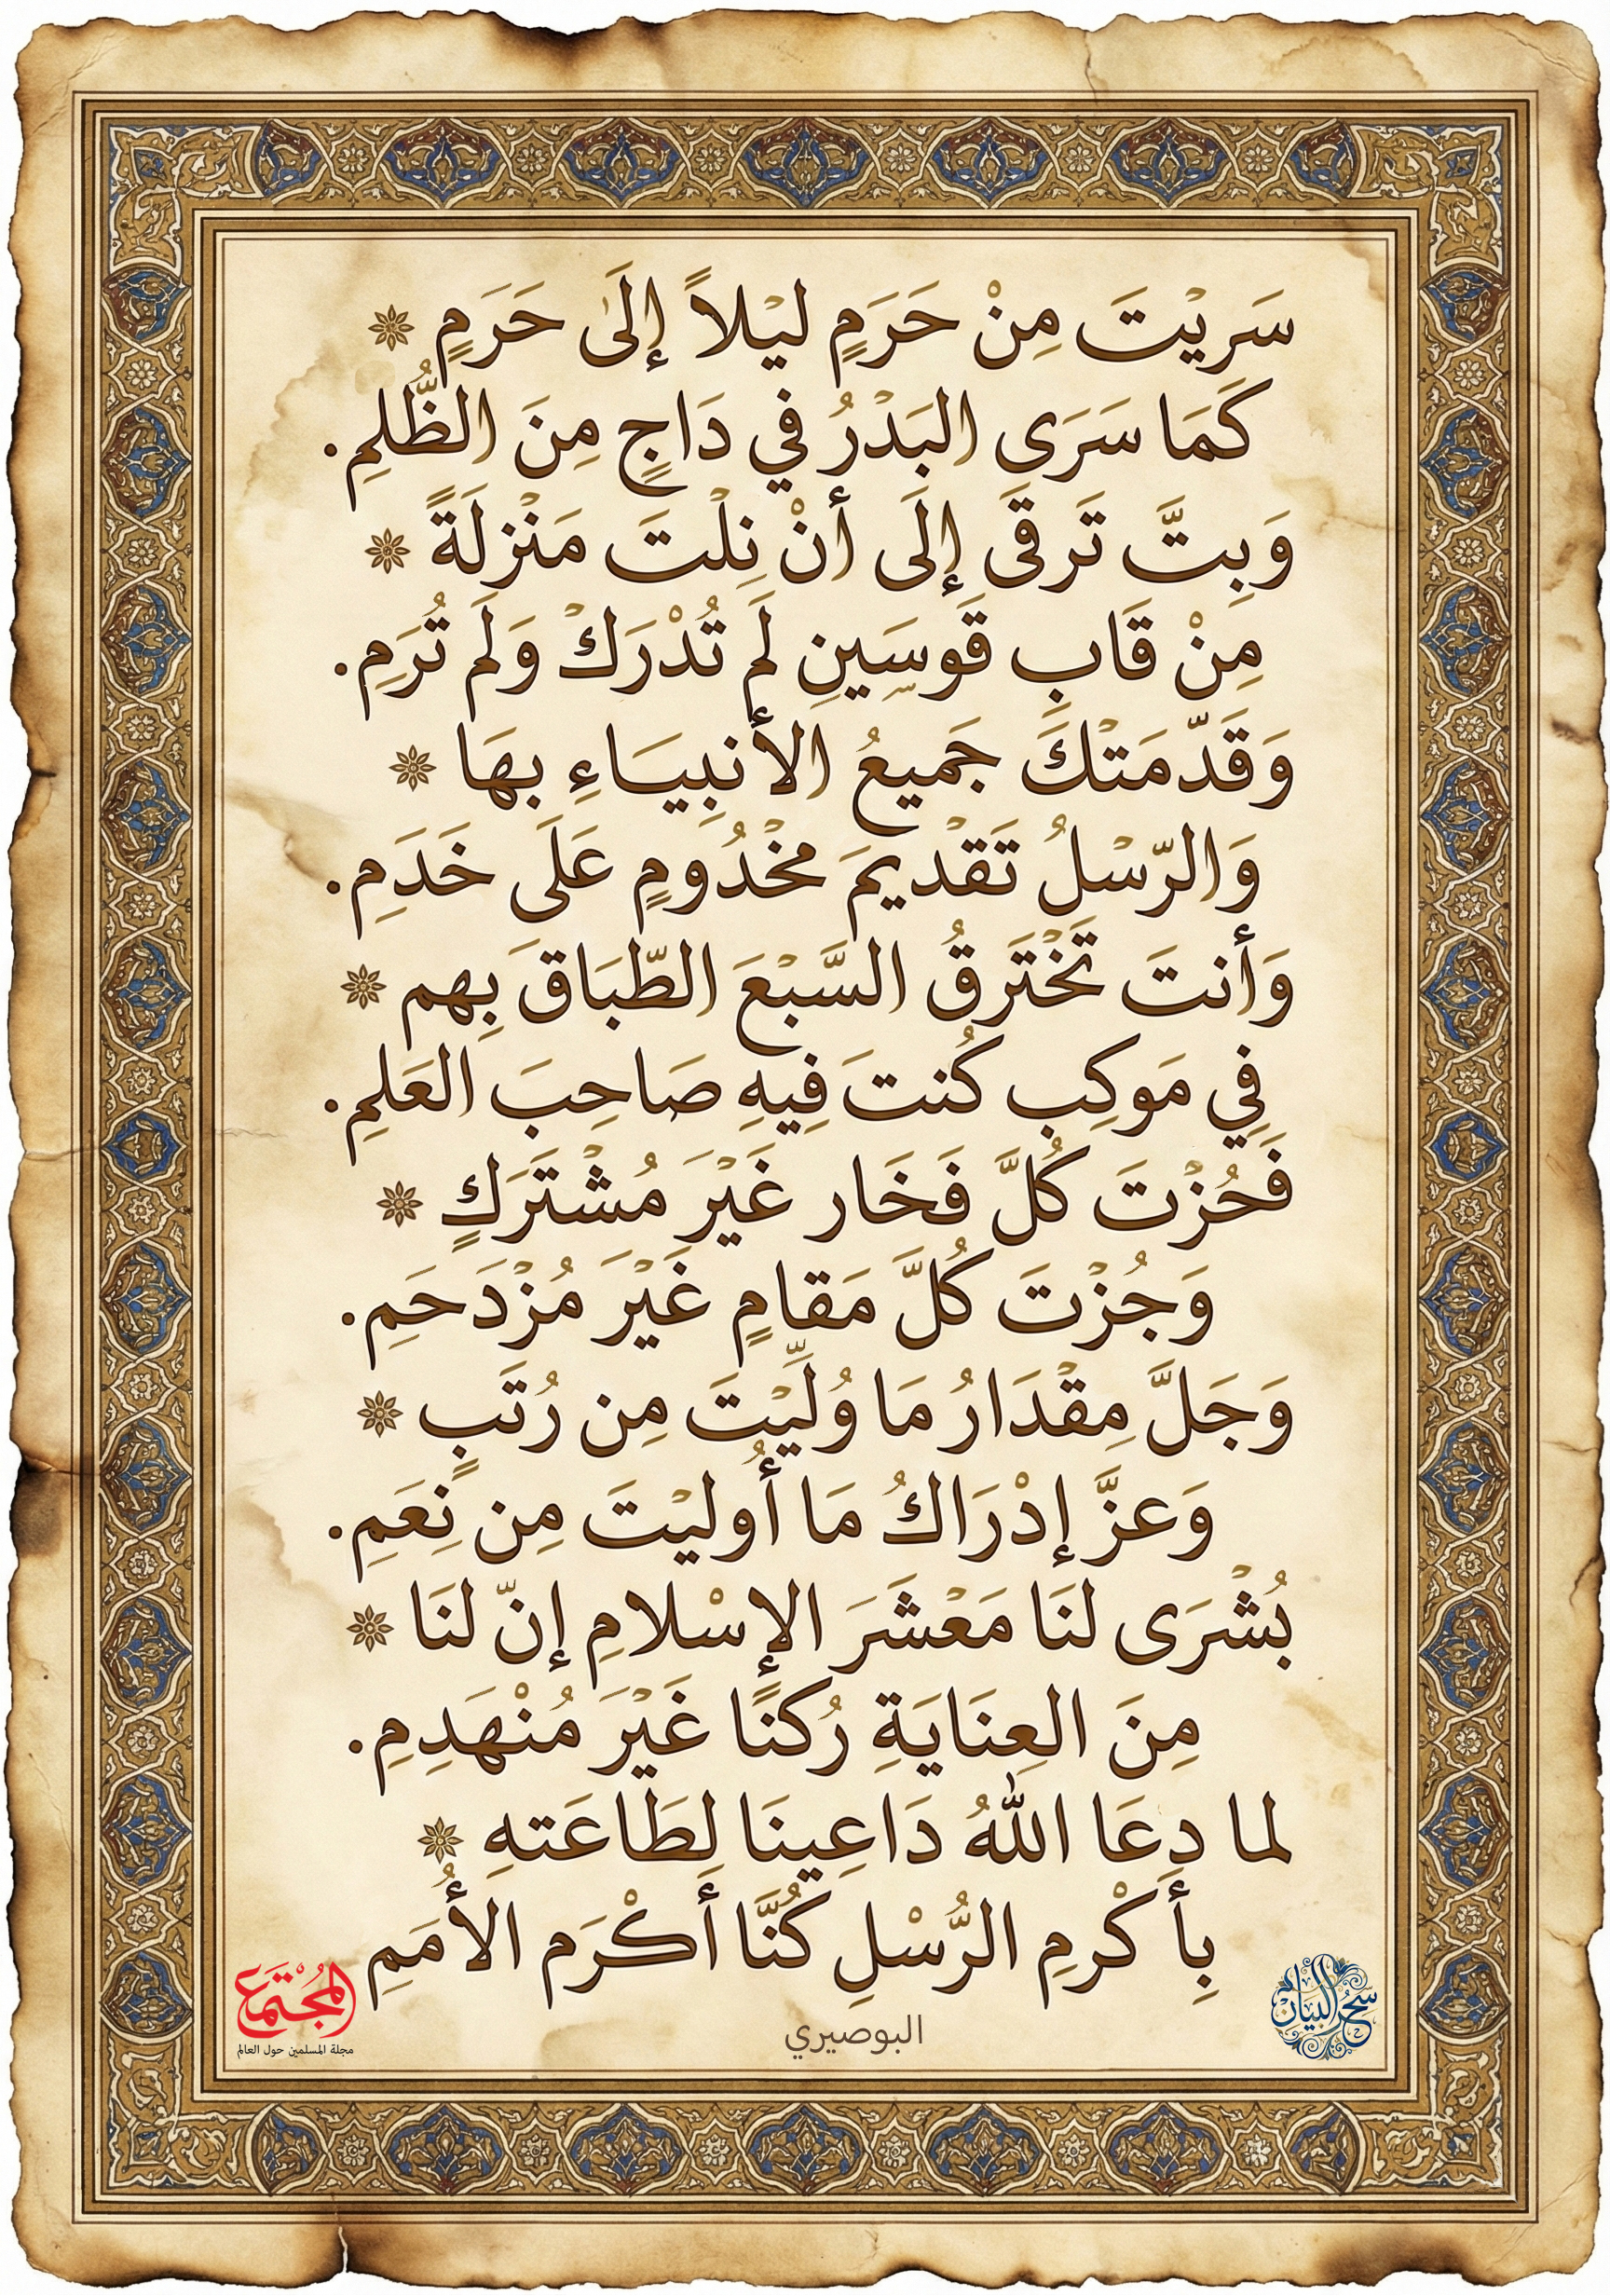 سَريْتَ مِنْ حَرَمٍ ليْلاً إلَىٰ حَرَمٍ
كَمَا سَرَى البَدْرُ في دَاجٍ مِنَ الظُّلمِ.
وَبِتَّ تَرقَى إلَى أنْ نِلْتَ مَنْزلَةً
مِنْ قَابِ قَوسَينِ لَم تُدْرَكْ وَلَم تُرَمِ.
وَقَدّمَتْكَ جَميعُ الأنبِيَاءِ بهَا
وَالرّسْلُ تَقْديمَ مخْدُومٍ عَلَى خَدَمِ.
وَأنتَ تَخْتَرقُ السَّبْعَ الطّبَاقَ بِهم
فِي مَوكِب كُنتَ فِيهِ صَاحِبَ العَلمِ.
فَحُزْتَ كُلَّ فَخَار غَيْرَ مُشْتَرَكٍ
وَجُزْتَ كُلَّ مَقامٍ غَيْرَ مُزْدَحَمِ.
وَجَلَّ مِقْدَارُ مَا وُلِّيْتَ مِن رُتَبٍ
وَعزَّ إدْرَاكُ مَا أُوليْتَ مِن نِعَمِ.
بُشْرَى لنَا مَعْشَرَ الإسْلامِ إنّ لنَا
مِنَ العِنَايَةِ رُكنًا غَيْرَ مُنْهَدِمِ.
لما دعَا اللهُ دَاعِينَا لطَاعَتهِ
بِأَكْرمِ الرُّسْلِ كُنَّا أَكْرَم الأُمَمِ
البوصيري
سحر البيان
المُجْتَمَع
مجلة المسلمين حول العالم